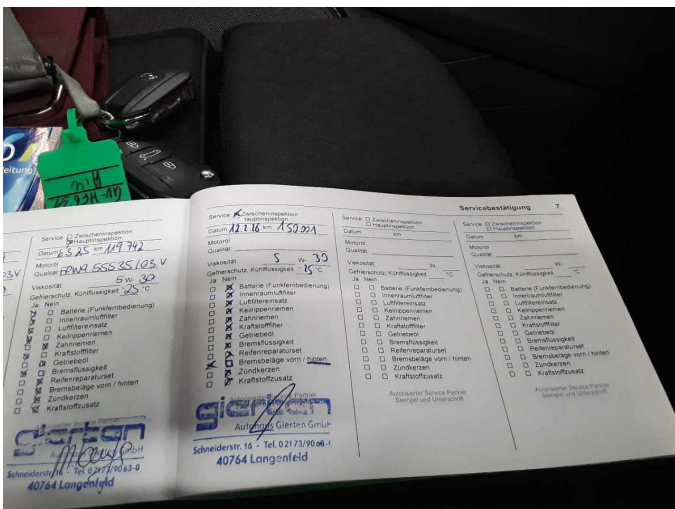 Servicebestätigung 7
Service Zwischeninspektion
Hauptinspektion
Datum 6.3.25 km 119.742
Motoröl
Qualität FPWA 55535/03 V
Viskosität 5W-30
Gefrierschutz, Kühlflüssigkeit -25 °C
Ja Nein
Batterie (Funkfernbedienung)
Innenraumluftfilter
Luftfiltereinsatz
Keilrippenriemen
Zahnriemen
Kraftstofffilter
Getriebeöl
Bremsflüssigkeit
Reifenreparaturset
Bremsbeläge vorn / hinten
Zündkerzen
Kraftstoffzusatz
Service Partner
gierten
GmbH
Schneiderstr. 16 - Tel. 02173/9063-0
40764 Langenfeld
Service Zwischeninspektion
Hauptinspektion
Datum 12.2.26 km 150.001
Motoröl
Qualität
Viskosität 5 W- 30
Gefrierschutz, Kühlflüssigkeit -25 °C
Ja Nein
Batterie (Funkfernbedienung)
Innenraumluftfilter
Luftfiltereinsatz
Keilrippenriemen
Zahnriemen
Kraftstofffilter
Getriebeöl
Bremsflüssigkeit
Reifenreparaturset
Bremsbeläge vorn / hinten
Zündkerzen
Kraftstoffzusatz
gierten
Autohaus Gierten GmbH
Schneiderstr. 16 - Tel. 02173/90
40764 Langenfeld
Service Zwischeninspektion
Hauptinspektion
Datum km
Motoröl
Qualität
Viskosität W-
Gefrierschutz, Kühlflüssigkeit °C
Ja Nein
Batterie (Funkfernbedienung)
Innenraumluftfilter
Luftfiltereinsatz
Keilrippenriemen
Zahnriemen
Kraftstofffilter
Getriebeöl
Bremsflüssigkeit
Reifenreparaturset
Bremsbeläge vorn / hinten
Zündkerzen
Kraftstoffzusatz
Autorisierter Service Partner
Stempel und Unterschrift
Service Zwischeninspektion
Hauptinspektion
Datum km
Motoröl
Qualität
Viskosität W-
Gefrierschutz, Kühlflüssigkeit °C
Ja Nein
Batterie (Funkfernbedienung)
Innenraumluftfilter
Luftfiltereinsatz
Keilrippenriemen
Zahnriemen
Kraftstofffilter
Getriebeöl
Bremsflüssigkeit
Reifenreparaturset
Bremsbeläge vorn / hinten
Zündkerzen
Kraftstoffzusatz
Autorisierter Service Partner
Stempel und Unterschrift